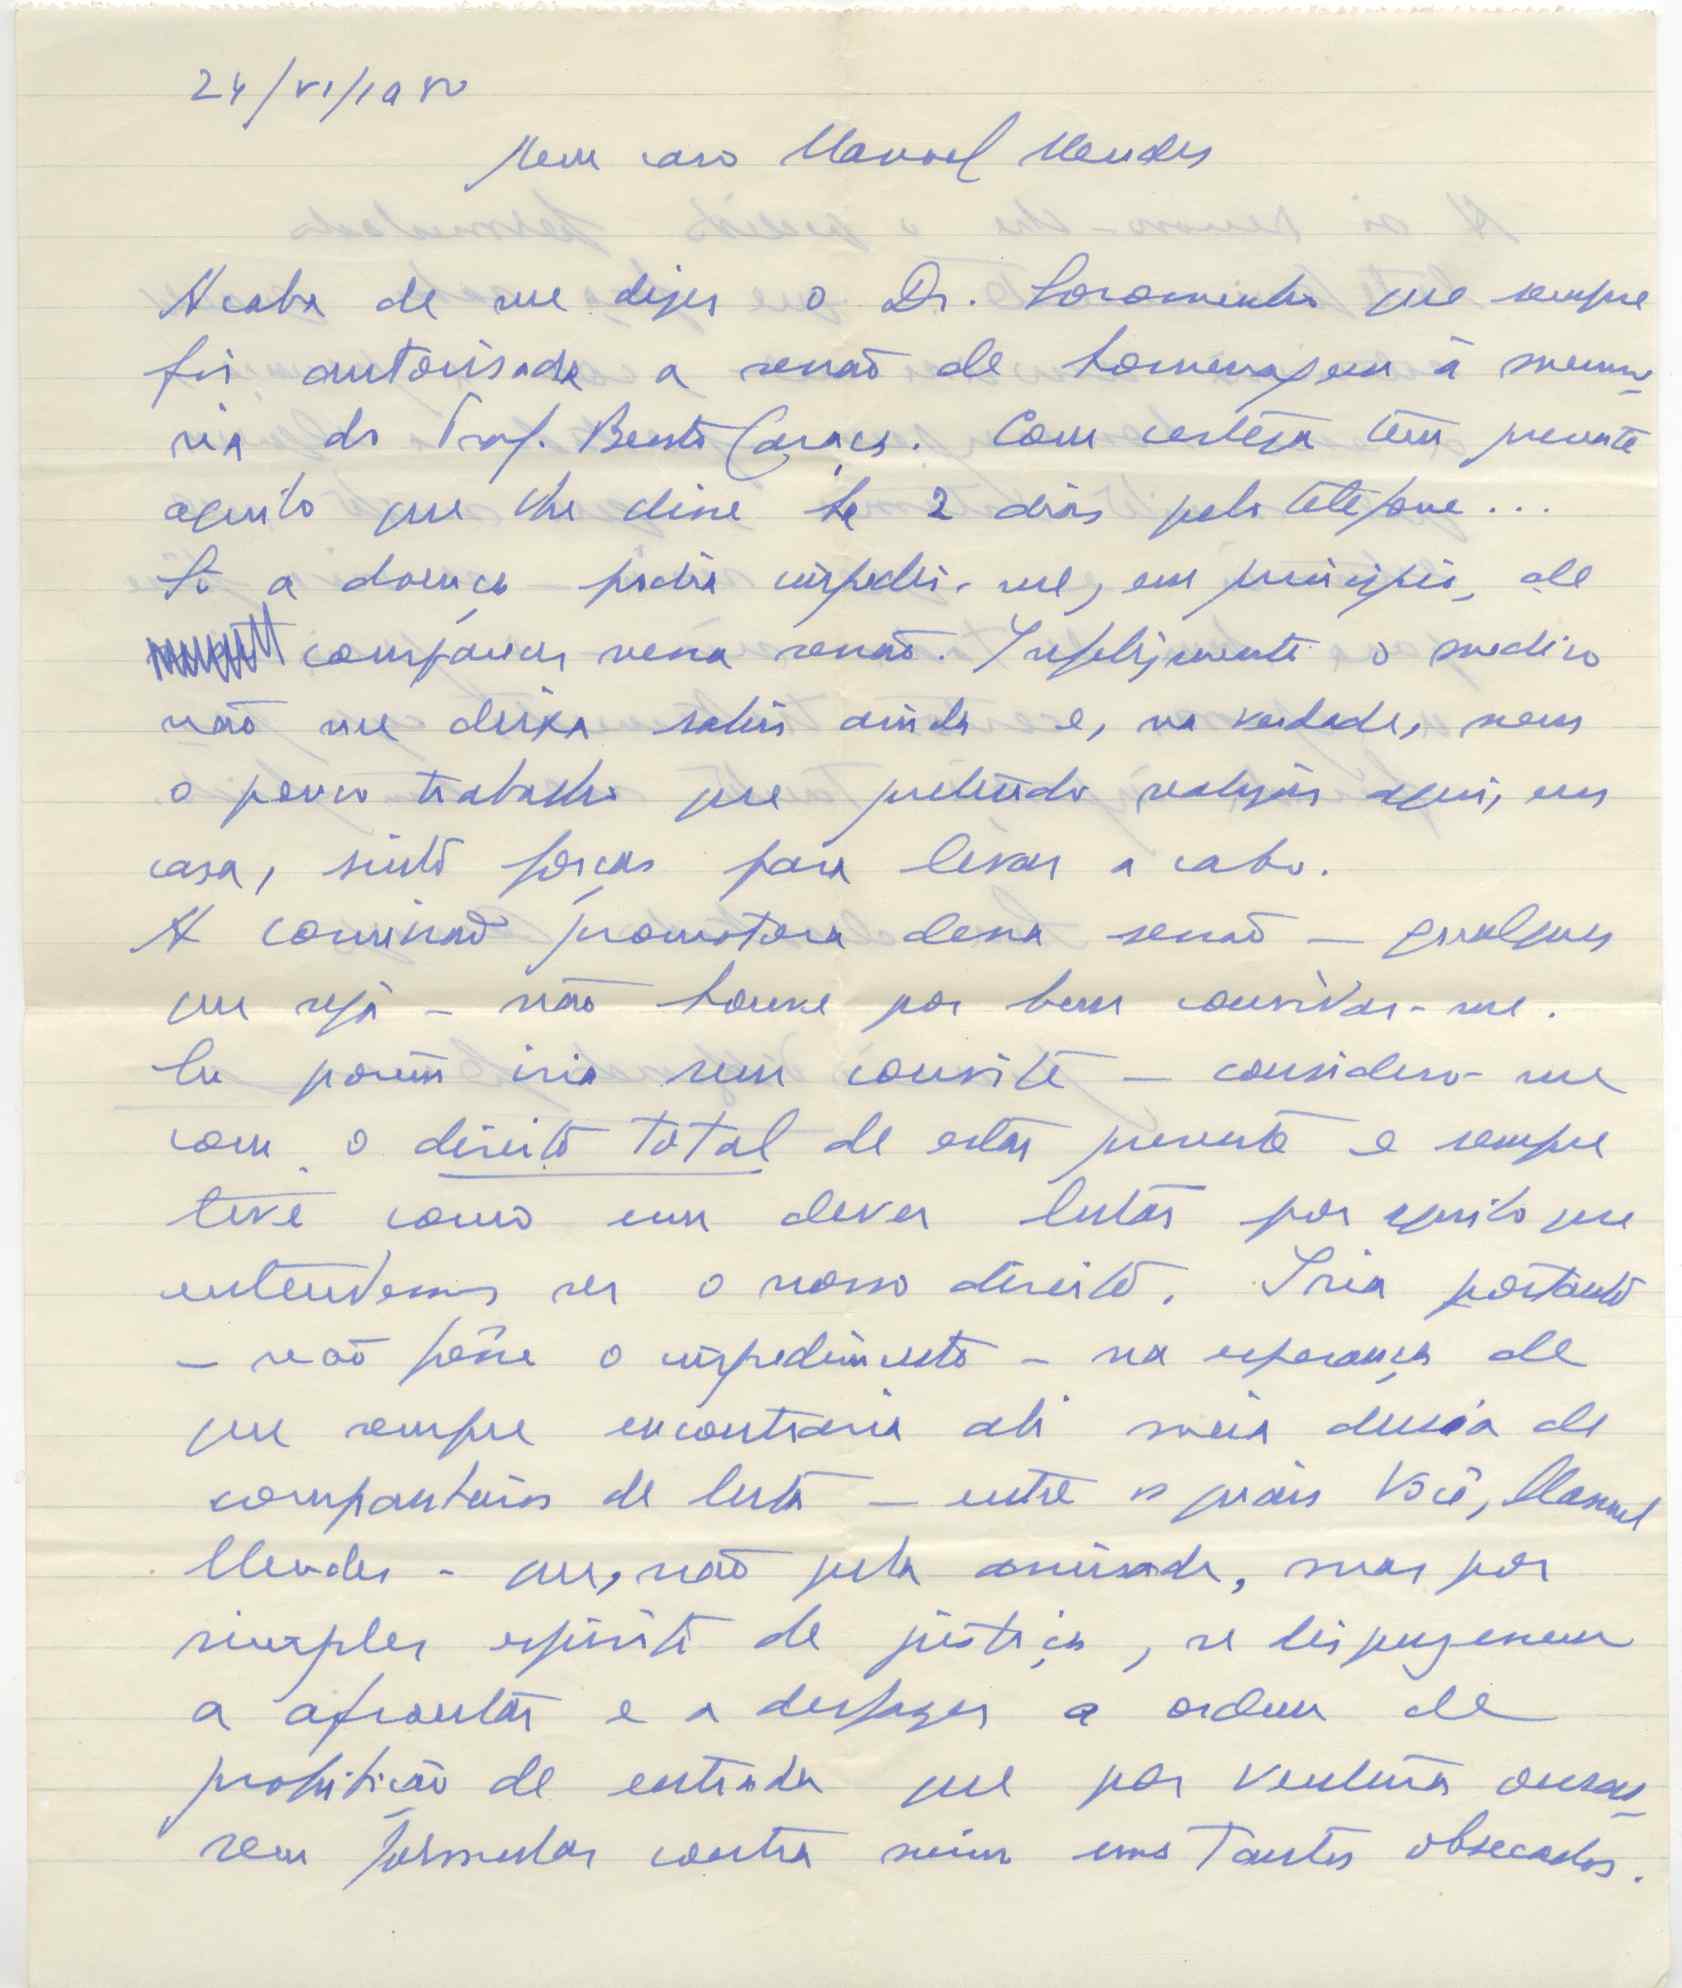 24/VI/1950
Meu caro Manoel Mendes
Acaba de me dizer o Dr. Loromenho que sempre
foi autorisada a sessão de homenagem à memó-
ria do Prof. Bento Caraça. Com certeza tem presente
aquilo que lhe disse há 2 dias pelo telefone...
Só a doença podia impedir-me, em principio, de
comparecer nessa sessão. Infelizmente o medico
não me deixa sahir ainda e, na verdade, nem
o pouco trabalho que pretendo realizar aqui, em
casa, sinto forças para levar a cabo.
A comissão promotora dessa sessão — qualquer
que seja — não houve por bem convidar-me.
Eu porém iria sem convite — considero-me
com o direito total de estar presente e sempre
tive como um dever lutar por aquilo que
entendemos ser o nosso direito. Iria portanto
— não fôsse o impedimento — na esperança de
que sempre encontraria ali meia dusia de
companheiros de luta — entre os quais Você, Manuel
Mendes - que, não pela amisade, mas por
simples espirito de justiça, se dispuzessem
a afrontar e a desfazer a ordem de
prohibição de entrada que por ventura ousas-
sem formular contra mim uns tantos obsecados.